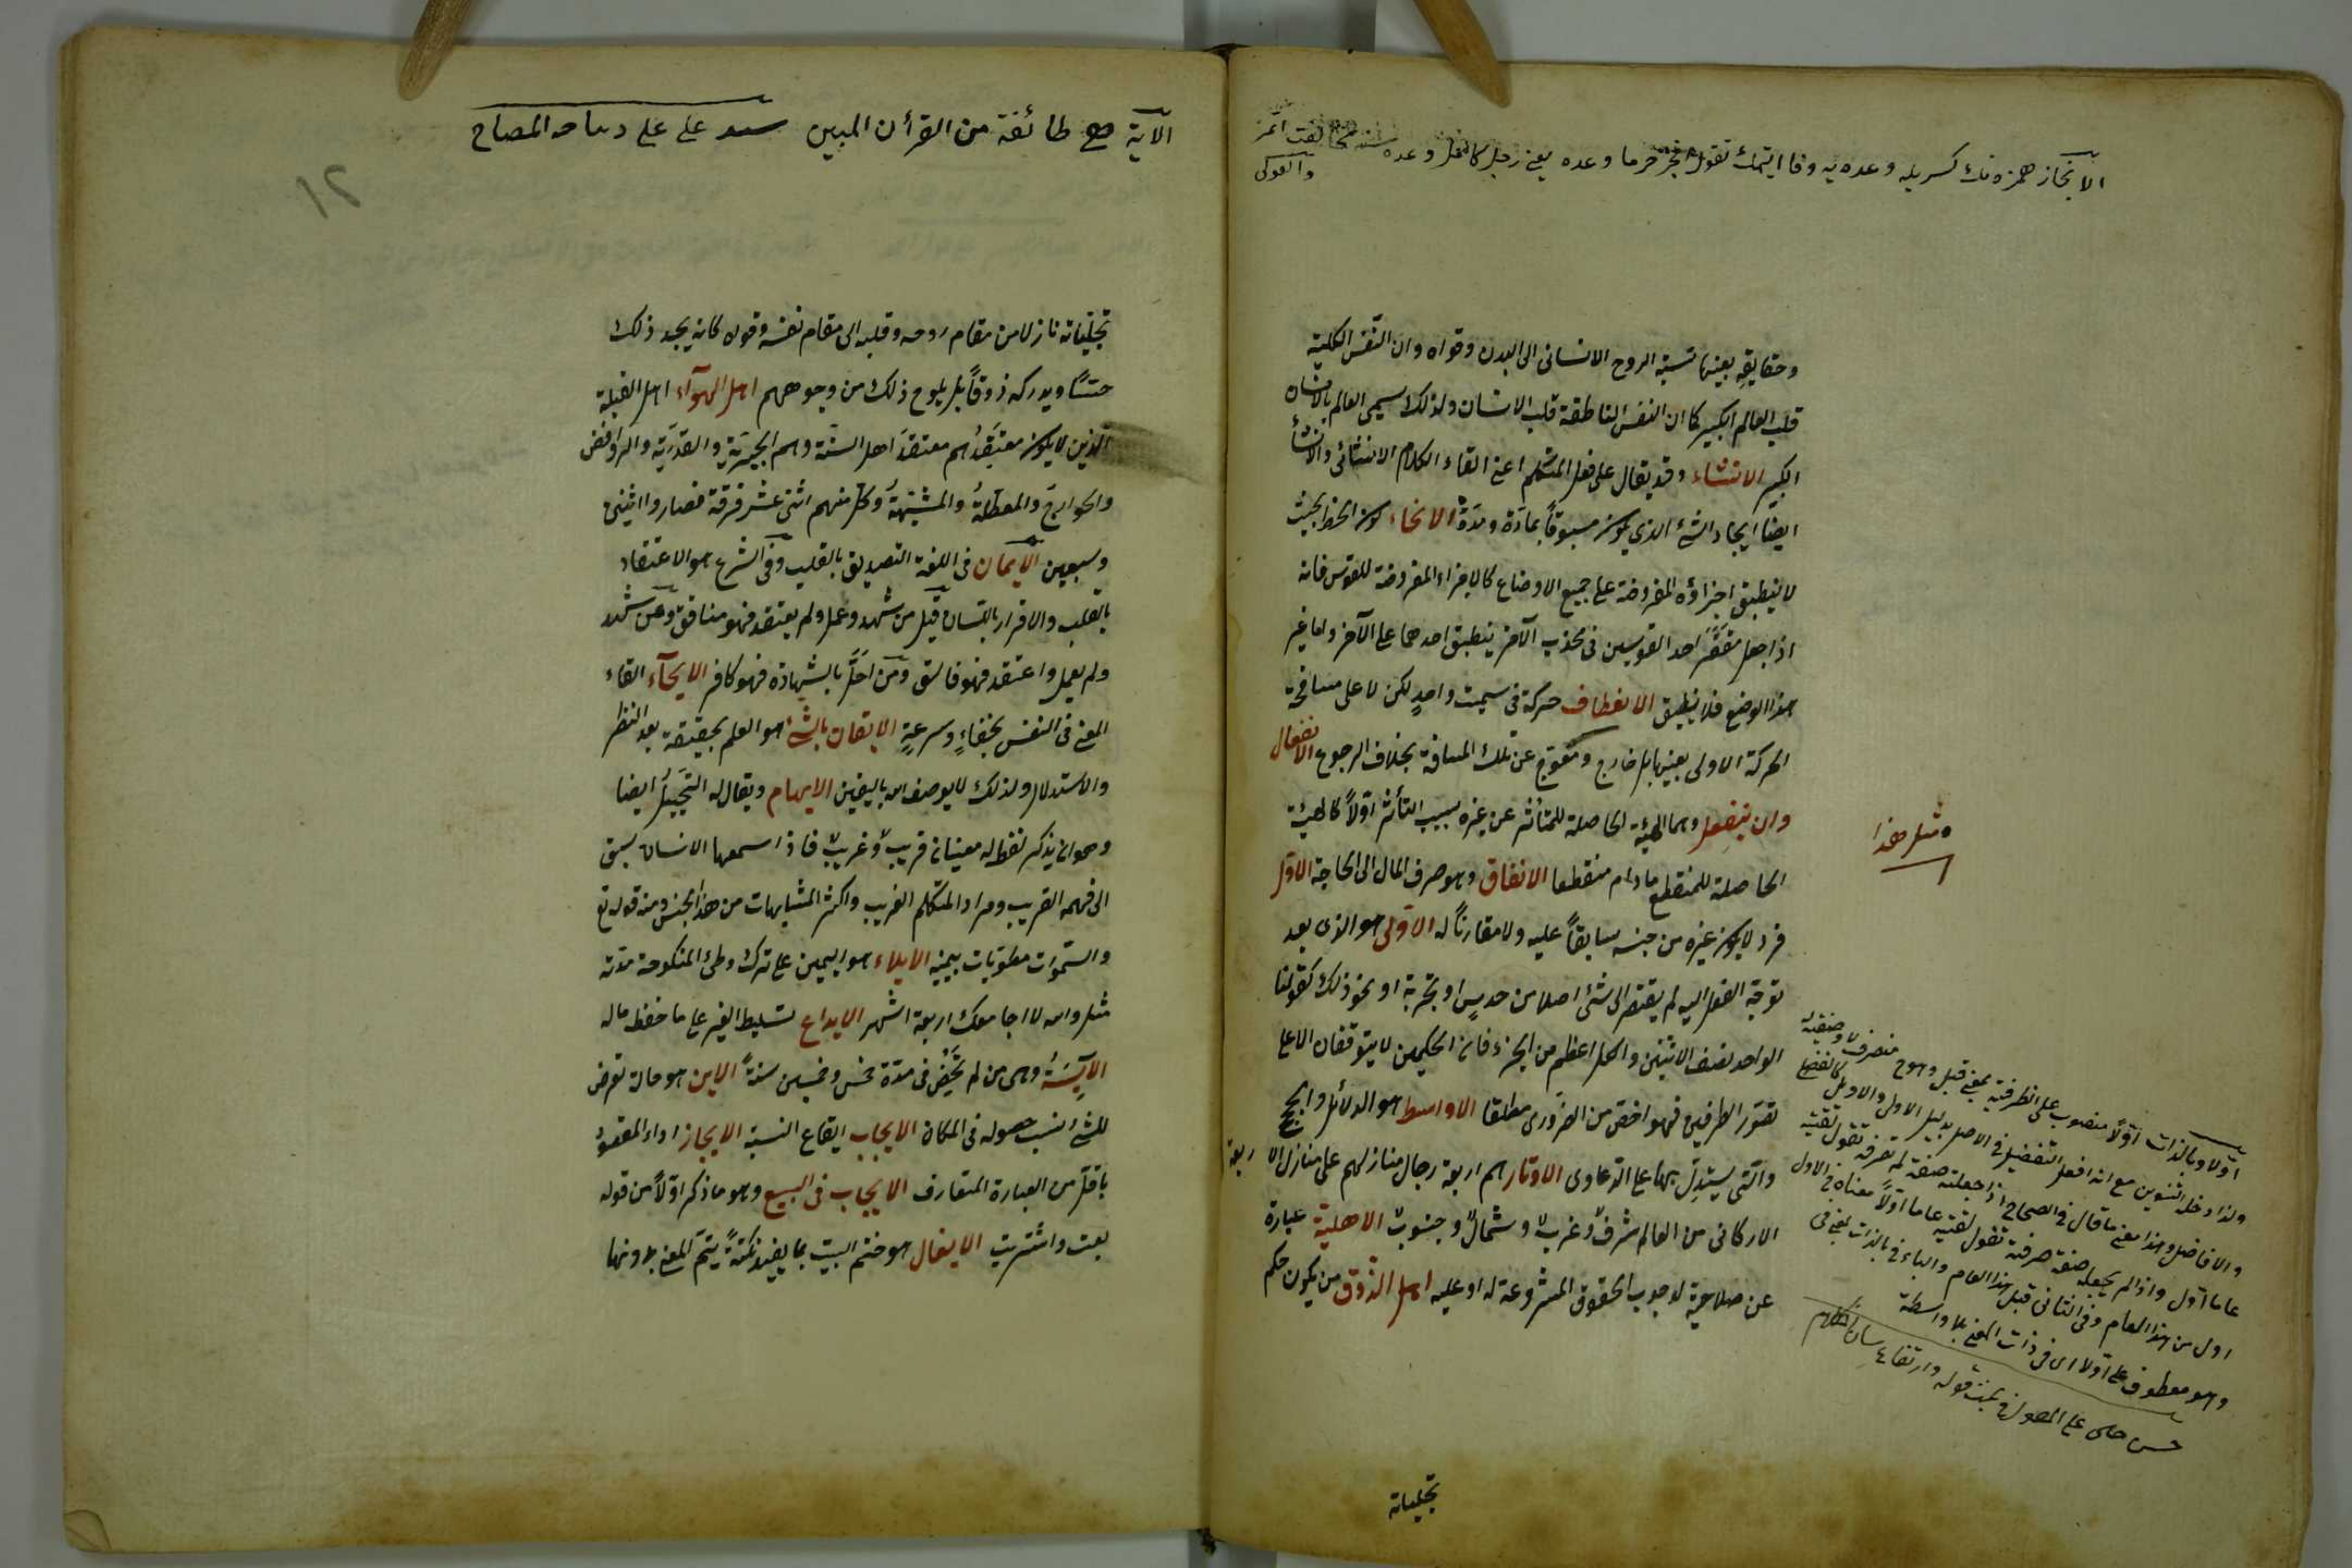 الانجاز همزه نك كسريله وعده يه وفا ايتمك تقول انجز حر ما وعده يعنى رجل كامل وعده
وحقايقه بعينها نسبة الروح الانسانى الى البدن وقواه وان النفس الكلية
قلب العالم الكبير كما ان النفس الناطقة قلب الانسان ولذلك سيمى العالم بالانسان
الكبير الانشاء وقد يقال على فعل المتكلم اعنى القاء الكلام الانشائى والانشاء
ايضا ايجاد الشئ الذى يكون مسبوقاً بمادة ومدة الانحناء كون الخط بحيث
لا ينطبق اجزاؤه المفروضة على جميع الاوضاع كالاجزاء المفروضة للقوس فانه
اذا جعل مقعّر احد القوسين فى محدب الآخر ينطبق احدهما على الآخر واما غير
هذا الوضع فلا ينطبق الانعطاف حركة فى سمت واحد لكن لا على مسافة
الحركة الاولى بعينها بل خارج ومعوج عن تلك المسافة بخلاف الرجوع الانفعال
وان ينفعل وهما الهيئة الحاصلة للمتأثر عن غيره بسبب التأثر اوّلاً كالهيئة
الحاصلة للمنقطع مادام منقطعا الانفاق وهو صرف المال الى الحاجة الاول
فرد لا يكون غيره من جنسه سابقاً عليه ولا مقارناً له الاوّلى هو الذى بعد
توجه العقل اليه لم يفتقر الى شئ اصلا من حدس او تجربة او نحو ذلك كقولنا
الواحد نصف الاثنين والكل اعظم من الجزء فان الحكمين لا يتوقفان الا على
تصور الطرفين فهو اخص من الضرورى مطلقا الاواسط هو الدلائل والحجج
والتى يستدل بها على الدعاوى الاوتار هم اربعة رجال منازلهم على منازل الاربعة
الاركانى من العالم شرق وغرب وشمال وجنوب الاهلية عبارة
عن صلاحية لوجوب الحقوق المشروعة له او عليه اهل الذوق من يكون حكم
مثل هذا
اولا وبالذات اوّلاً منصوب على الظرفية بمعنى قبل وهو ح منصرف لا وصفية له
ولذا دخل التنوين مع انه افعل التفضيل فى الاصل بدليل الاولى والاوائل كالفضلى
والافاضل وهذا معنى ما قال فى الصحاح اذا جعلته صفة لم تصرفه تقول لقيته
عاما اوّل واذا لم يجعله صفة صرفته تقول لقيته عاما اوّلاً معناه فى الاول
اول من هذا العام وفى الثانى قبل هذا العام والباء فى بالذات بمعنى فى
وهو معطوف على اولا اى فى ذات المعنى بلا واسطة
حسن چلبى على المطول فى بحث قوله وارتفاع شان الكلام
تجلياته
الآية صح طائفة من القرأن المبين سيد على على ديباجه المصباح
١٢
تجلّياته نازلا من مقام روحه وقلبه الى مقام نفسه وقواه كانه يجد ذلك
حسّا ويدركه ذوقاً بل يلوح ذلك من وجوههم اهل الهوآء اهل القبلة
الذين لا يكون معتقَدهم معتقدَ اهل السنّة وهم الجبرية والقدرية والروافض
والخوارج والمعطلة والمشبّهة وكل منهم اثنى عشر فرقة فصاروا اثنين
وسبعين الايمان فى اللغة التصديق بالقلب وفى الشرع هو الاعتقاد
بالقلب والاقرار باللسان قيل من شهد وعمل ولم يعتقد فهو منافق ومن شهد
ولم يعمل واعتقد فهو فاسق ومن اخلّ بالشهادة فهو كافر الايحآء القاء
المعنى فى النفس بخفاءٍ وسرعةٍ الايقان بالشئ هو العلم بحقيقته بعد النظر
والاستدلال ولذلك لا يوصف الله باليقين الايهام ويقال له التخييل ايضا
وهو ان يذكر لفظ له معنيان قريب وغريب فاذا سمعها الانسان سبق
الى فهمه القريب ومراد المتكلم الغريب واكثر المتشابهات من هذا الجنس ومنه قوله تع
والسّموات مطويّات بيمينه الايلاء هو اليمين على ترك وطئ المنكوحة مدّته
مثل والله لا اجامعك اربعة اشهر الايداع تسليط الغير على ما حفظ ماله
الآيسة وهى من لم تحِض فى مدّة خمس وخمسين سنةً الاين هو حالة تعرض
للشئ بسبب حصوله فى المكان الايجاب ايقاع النسبة الايجاز اداء المقصود
باقلّ من العبارة المتعارف الايجاب فى البيع وهو ما ذكر اوّلاً من قوله
بعت واشتريت الايغال هو ختم البيت بما يفيد نكتةً يتمّ المعنى بدونها